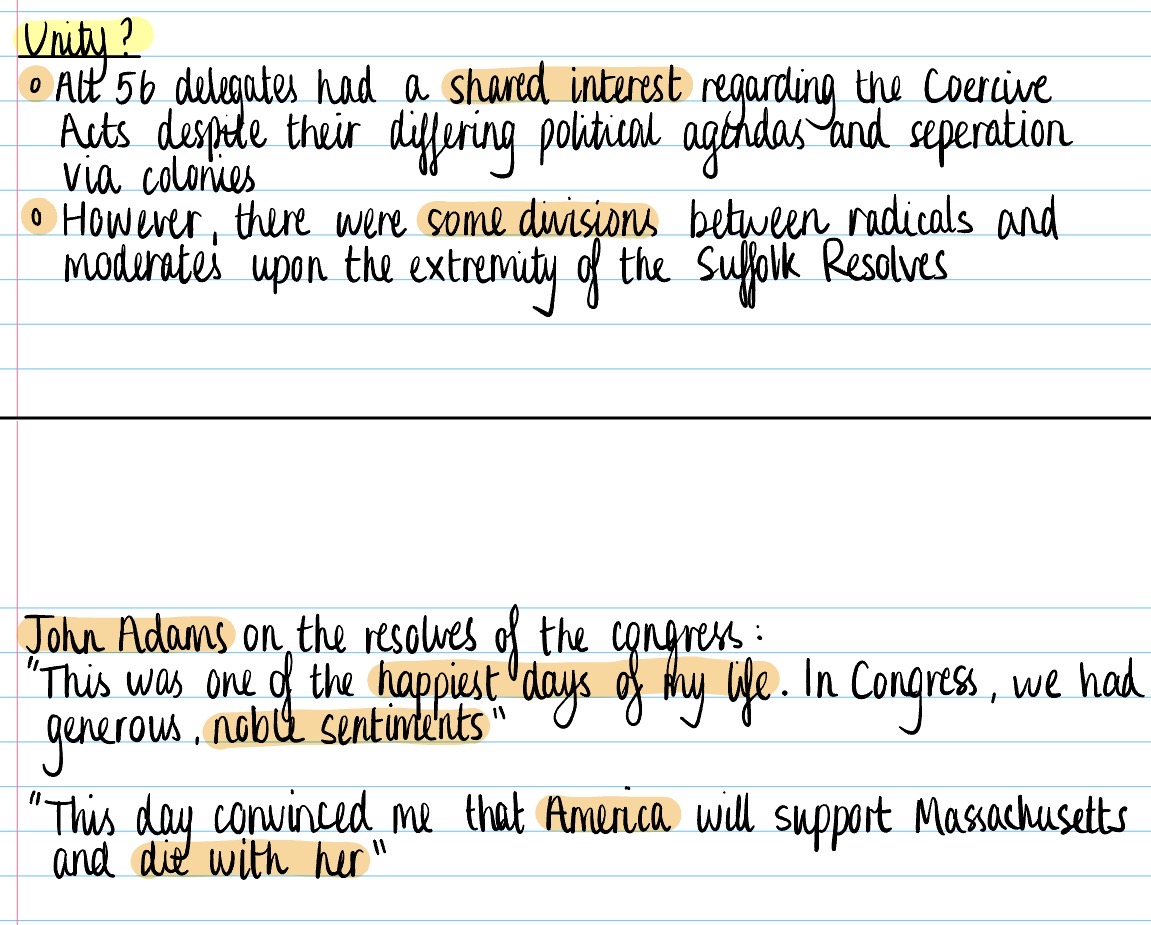 Unity?
o All 56 delegates had a shared interest regarding the Coercive
Acts despite their differing political agendas and seperation
via colonies
o However, there were some divisions between radicals and
moderates upon the extremity of the Suffolk Resolves
John Adams on the resolves of the congress:
"This was one of the happiest days of my life. In Congress, we had
generous, noble sentiments"
"This day convinced me that America will support Massachusetts
and die with her"